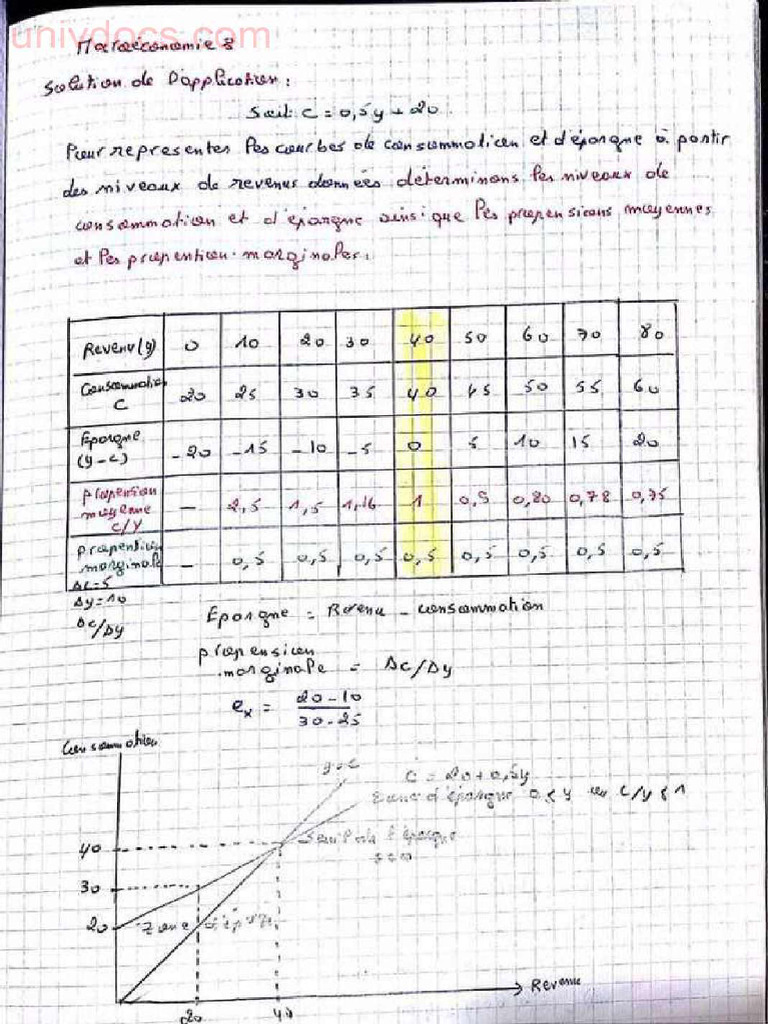 univdocs.com
Macroéconomie 8
Solution de l'application :
Soit : C = 0,5y + 20
Pour representer les courbes de consommation et d'épargne à partir
des niveaux de revenus données déterminons les niveaux de
consommation et d'épargne ainsi que les propensions moyennes
et les propention marginales :
Revenu (y) 0 10 20 30 40 50 60 70 80
Consommation C 20 25 30 35 40 45 50 55 60
Epargne (y-c) -20 -15 -10 -5 0 5 10 15 20
propention moyenne C/Y - 2,5 1,5 1,16 1 0,9 0,80 0,78 0,75
propention marginale - 0,5 0,5 0,5 0,5 0,5 0,5 0,5 0,5
Δc=5
Δy=10
Δc/Δy
Epargne = Revenu - consommation
propension marginale = Δc/Δy
ex = 20-10 / 30-25
Consommation
y=c
C = 20+0,5y
Zone d'épargne C/y < 1
40
Seuil de l'épargne
30
20
Zone
Revenu
20 40